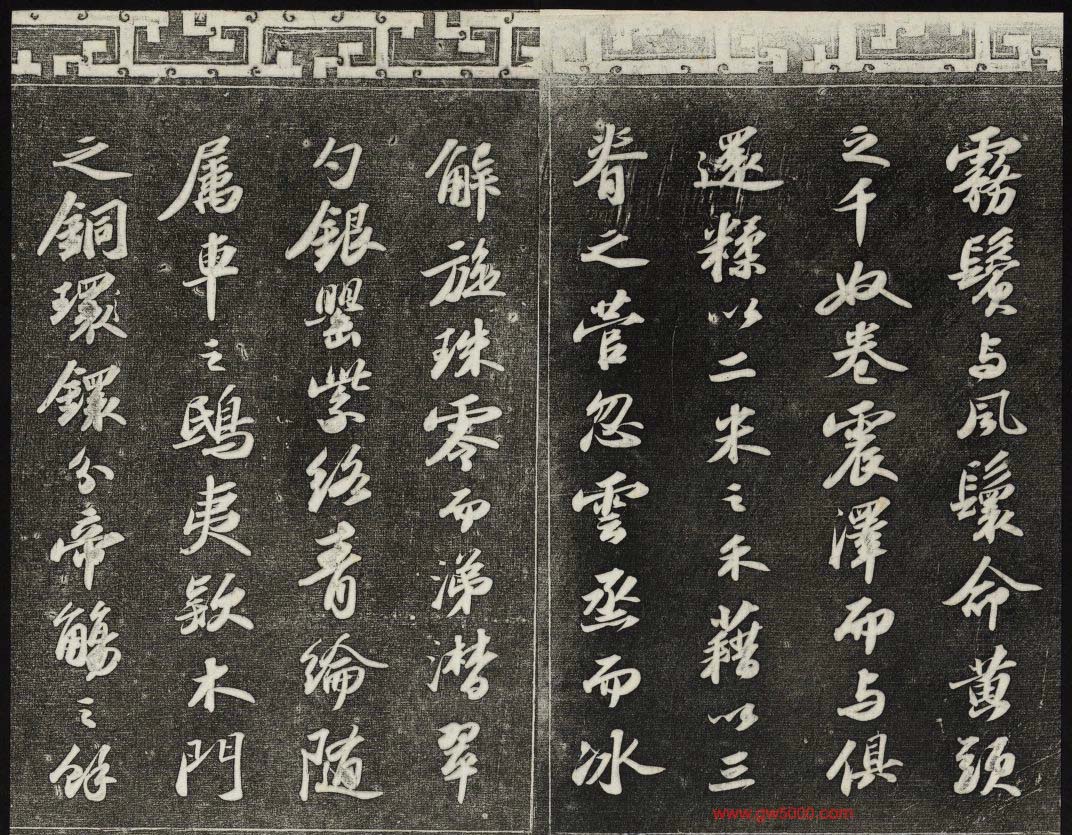 霧鬢与風鬟命黄頭
之千奴卷震澤而与俱
還糅以二米之禾藉以三
脊之菅忽雲烝而冰
解旋珠零而涕潸翠
勺銀罌紫絡青綸随
属車之鴟夷款木門
之銅環鐶分帝觴之餘
www.gw5000.com